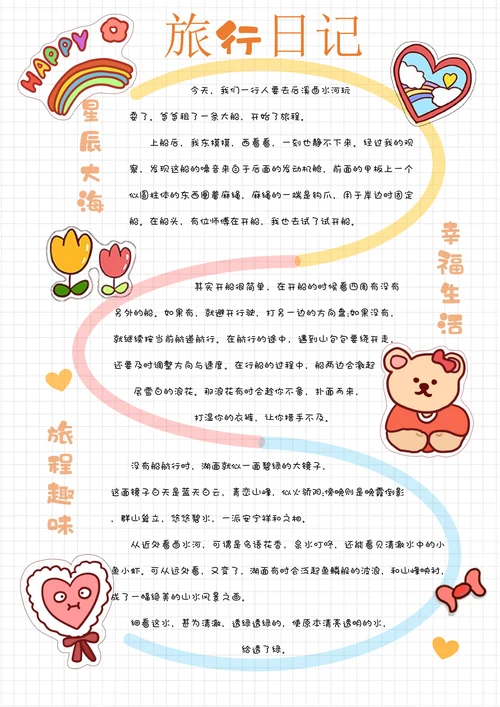 旅行日记
HAPPY
星辰大海
今天，我们一行人要去后溪西水河玩
耍了。爷爷租了一条大船，开始了旅程。
上船后，我东摸摸，西看看，一刻也静不下来。经过我的观
察，发现这船的噪音来自于后面的发动机舱，前面的甲板上一个
似圆柱体的东西圈着麻绳，麻绳的一端是钩爪，用于岸边时固定
船。在船头，有位师傅在开船，我也去试了试开船。
幸福生活
其实开船很简单，在开船的时候看四周有没有
另外的船。如果有，就避开行驶，打另一边的方向盘;如果没有，
就继续按当前航道航行。在航行的途中，遇到山包包要绕开走，
还要及时调整方向与速度。在行船的过程中，船两边会激起
层雪白的浪花。那浪花有时会趁你不备，扑面而来，
打湿你的衣裤，让你措手不及。
旅程趣味
没有船航行时，湖面就似一面碧绿的大镜子，
这面镜子白天是蓝天白云，青峦山峰，似火骄阳;傍晚则是晚霞倒影
，群山耸立，悠悠碧水，一派安宁祥和之物。
从近处看西水河，可谓是鸟语花香，泉水叮咚，还能看见清澈水中的小
鱼小虾。可从远处看，又变了，湖面有时会泛起鱼鳞船的波浪，和山峰映衬，
成了一幅绝美的山水风景之画。
细看这水，甚为清澈，透绿透绿的，使原本清亮透明的水，
给透了绿。